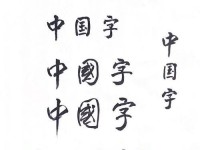 中国字
中國字
中國字
中国字